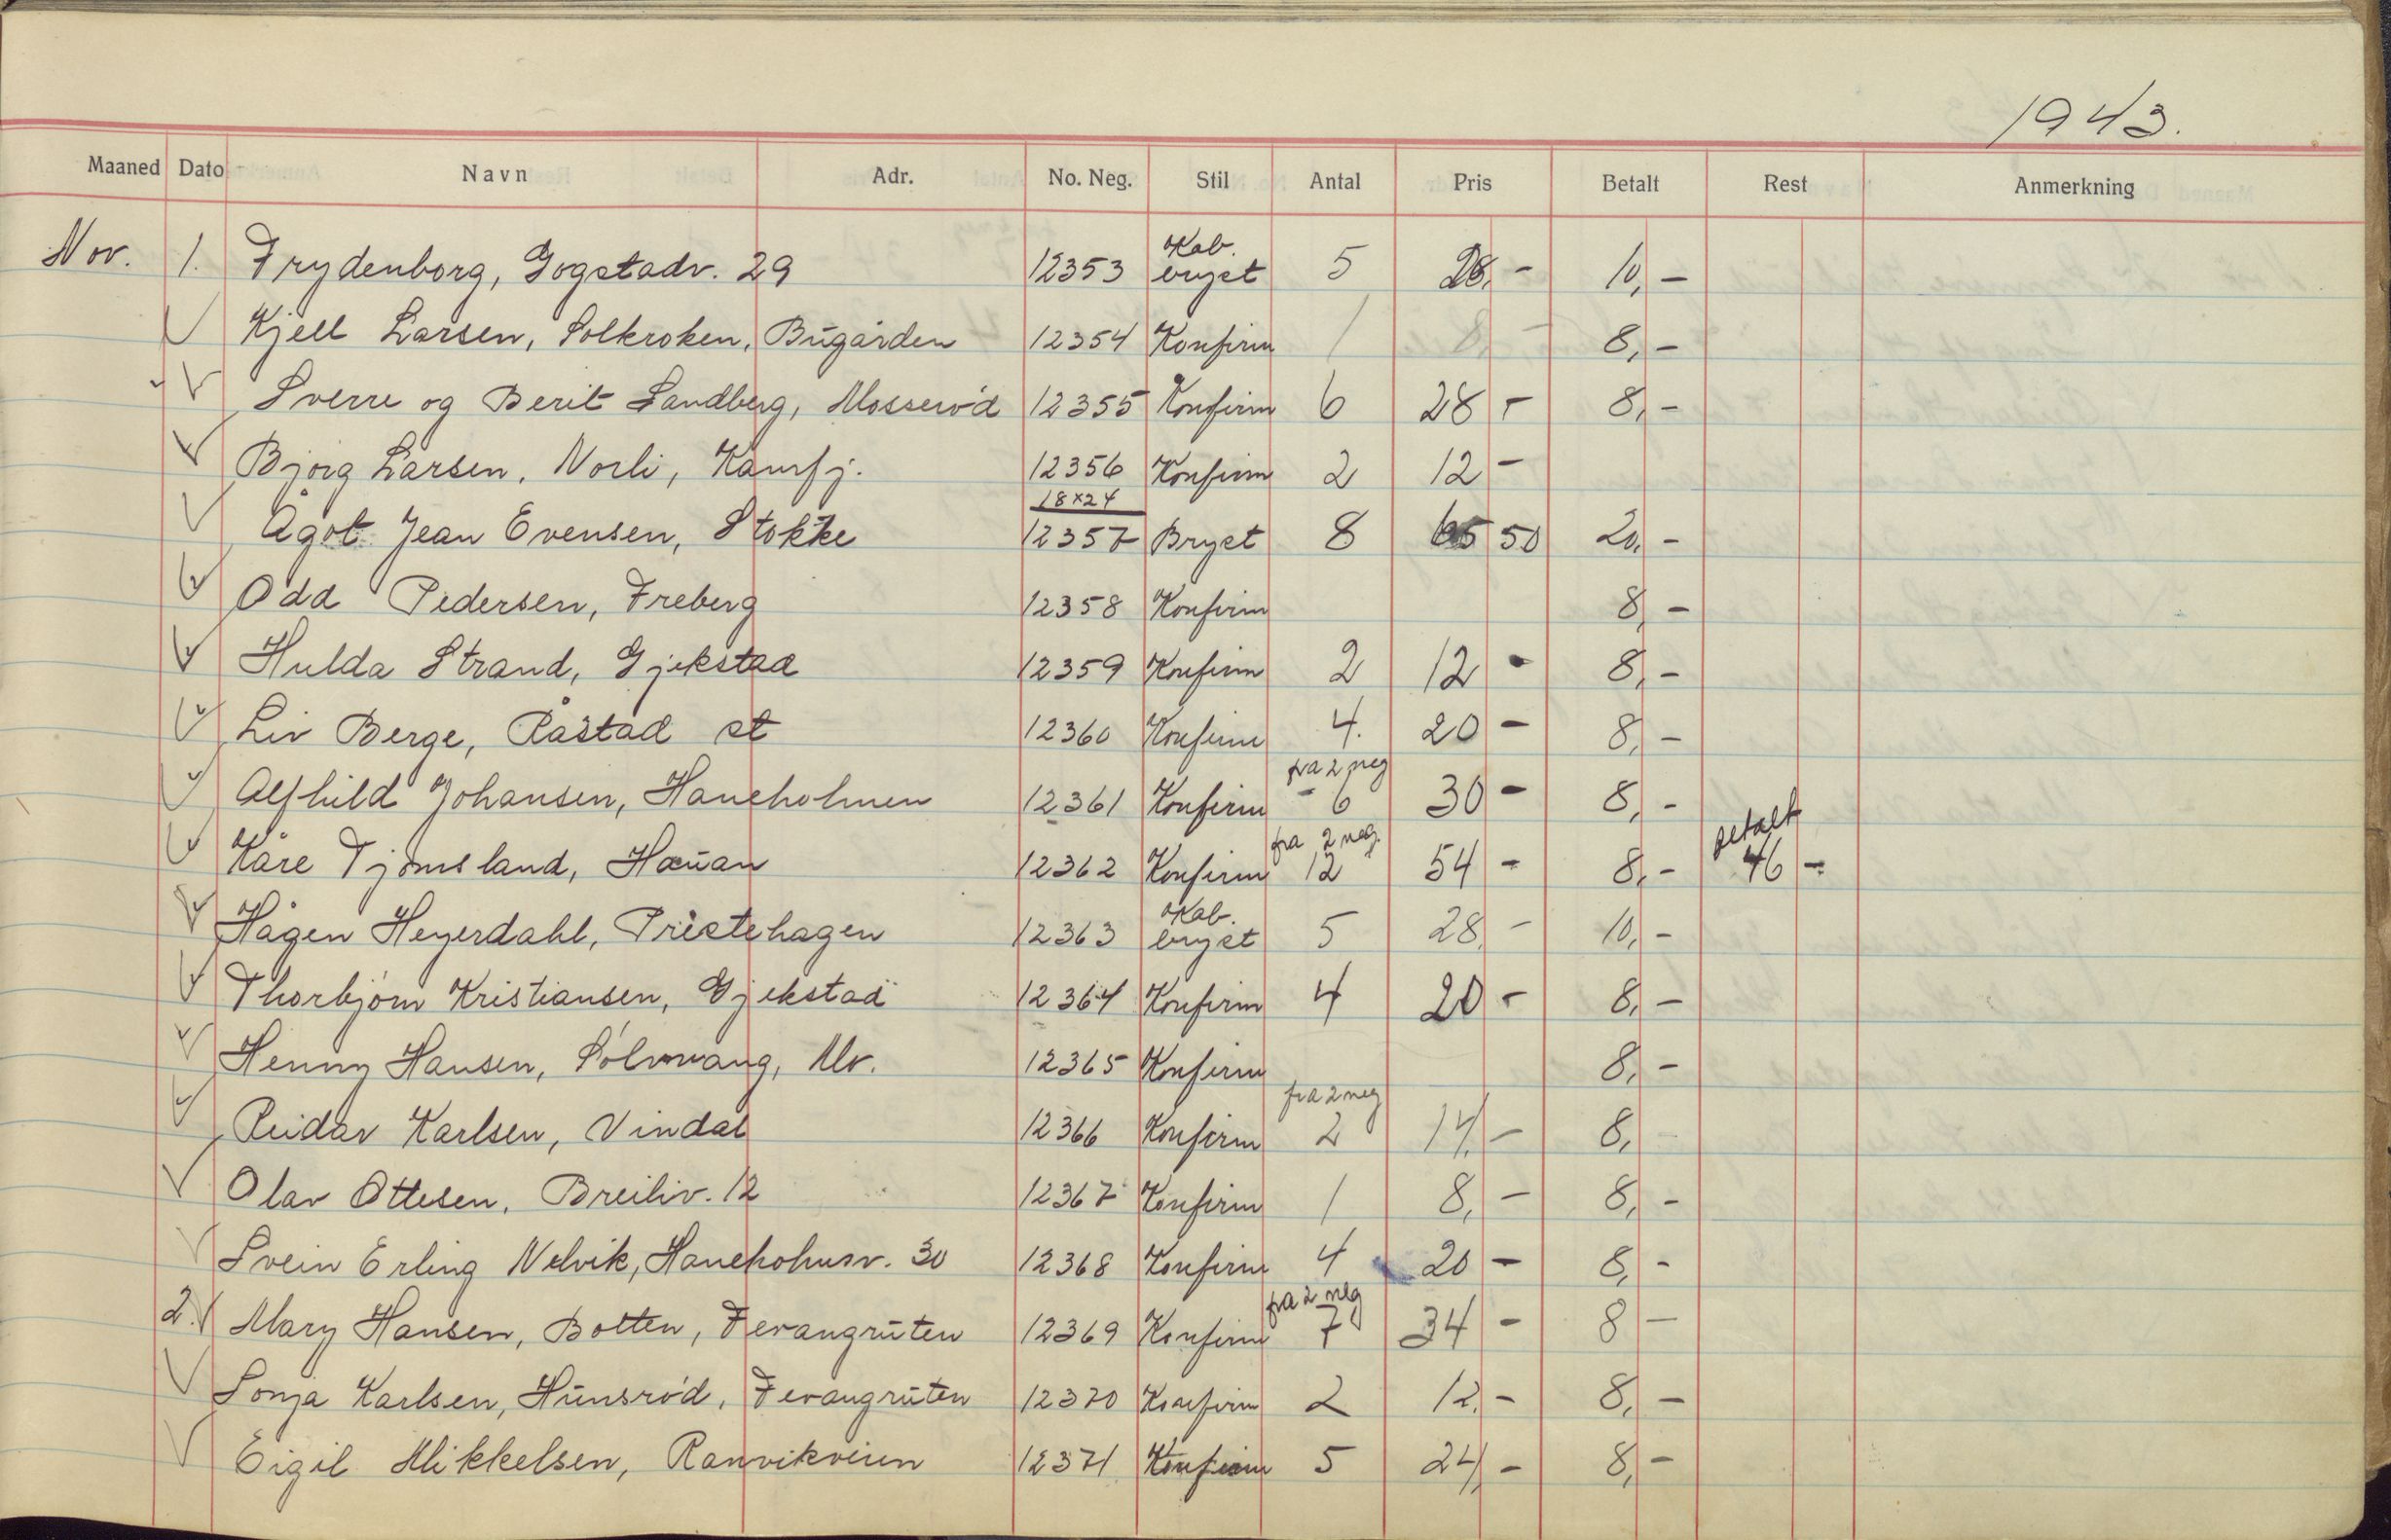 1943.
Maaned Dato Navn Adr. No. Neg. Stil Antal Pris Betalt Rest Anmerkning
Nov. 1. Frydenborg, Gogstadv. 29 12353 Kab. bryst 5 28,- 10,-
Kjell Larsen, Solkroken, Bugården 12354 Konfirm 1 8,- 8,-
Sverre og Berit Sandberg, Mosserød 12355 Konfirm 6 28 - 8,-
Bjørg Larsen, Norli, Kamfj. 12356 Konfirm 2 12 -
Ågot Jean Evensen, Stokke 18x24 12357 Bryst 8 65 50 20,-
Odd Pedersen, Freberg 12358 Konfirm 8,-
Hulda Strand, Gjekstad 12359 Konfirm 2 12 - 8,-
Liv Berge, Råstad st 12360 Konfirm 4. 20 - 8,-
Alfhild Johansen, Haneholmen 12361 Konfirm fra 2 neg 6 30 - 8,-
Kåre Tjømsland, Haugan 12362 Konfirm fra 2 neg. 12 54 - 8,- betalt 46 -
Hågen Heyerdahl, Prestehagen 12363 Kab. bryst 5 28,- 10,-
Thorbjørn Kristiansen, Gjekstad 12364 Konfirm 4 20 - 8,-
Henny Hansen, Sølvvang, Nv. 12365 Konfirm 8,-
Reidar Karlsen, Vindal 12366 Konfirm fra 2 neg 2 14,- 8,
Olav Ottesen, Breiliv. 12 12367 Konfirm 1 8,- 8,-
Svein Erling Nelvik, Haneholmv. 30 12368 Konfirm 4 20 - 8,-
2. Mary Hansen, Botten, Fevangruten 12369 Konfirm fra 2 neg 7 34 - 8 -
Sonja Karlsen, Hunsrød, Fevangruten 12370 Konfirm 2 12,- 8,-
Eigil Mikkelsen, Ranvikveien 12371 Konfirm 5 24,- 8,-